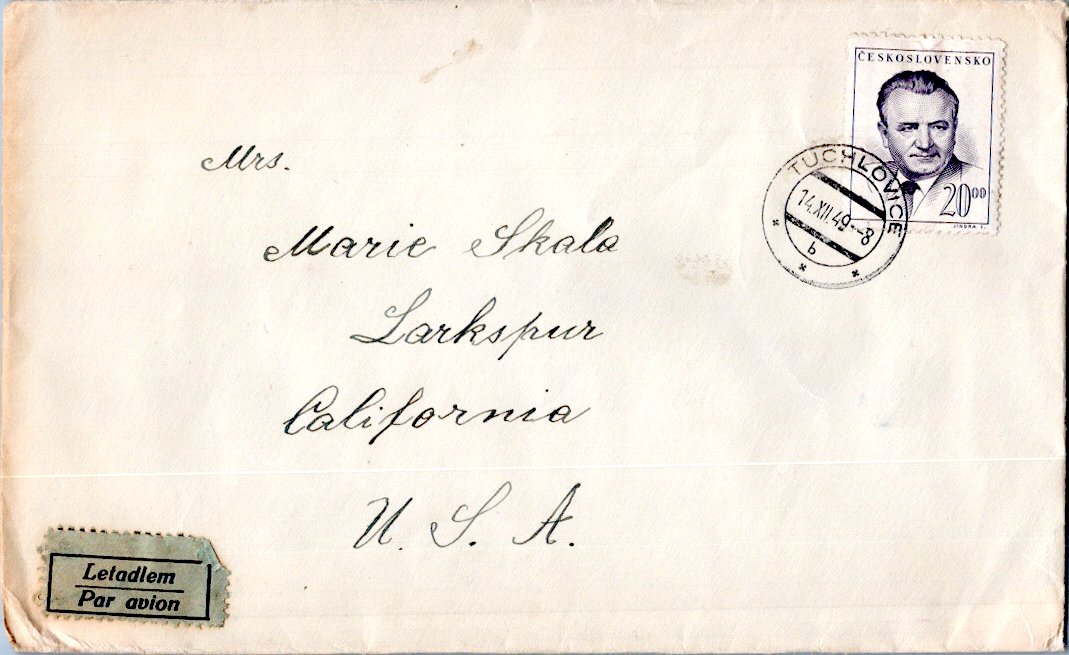 ČESKOSLOVENSKO
2000
JINDRA S.
TUCHLOVICE
14.XII.49–8
b
Mrs.
Marie Skala
Larkspur
California
U. S. A.
Letadlem
Par avion